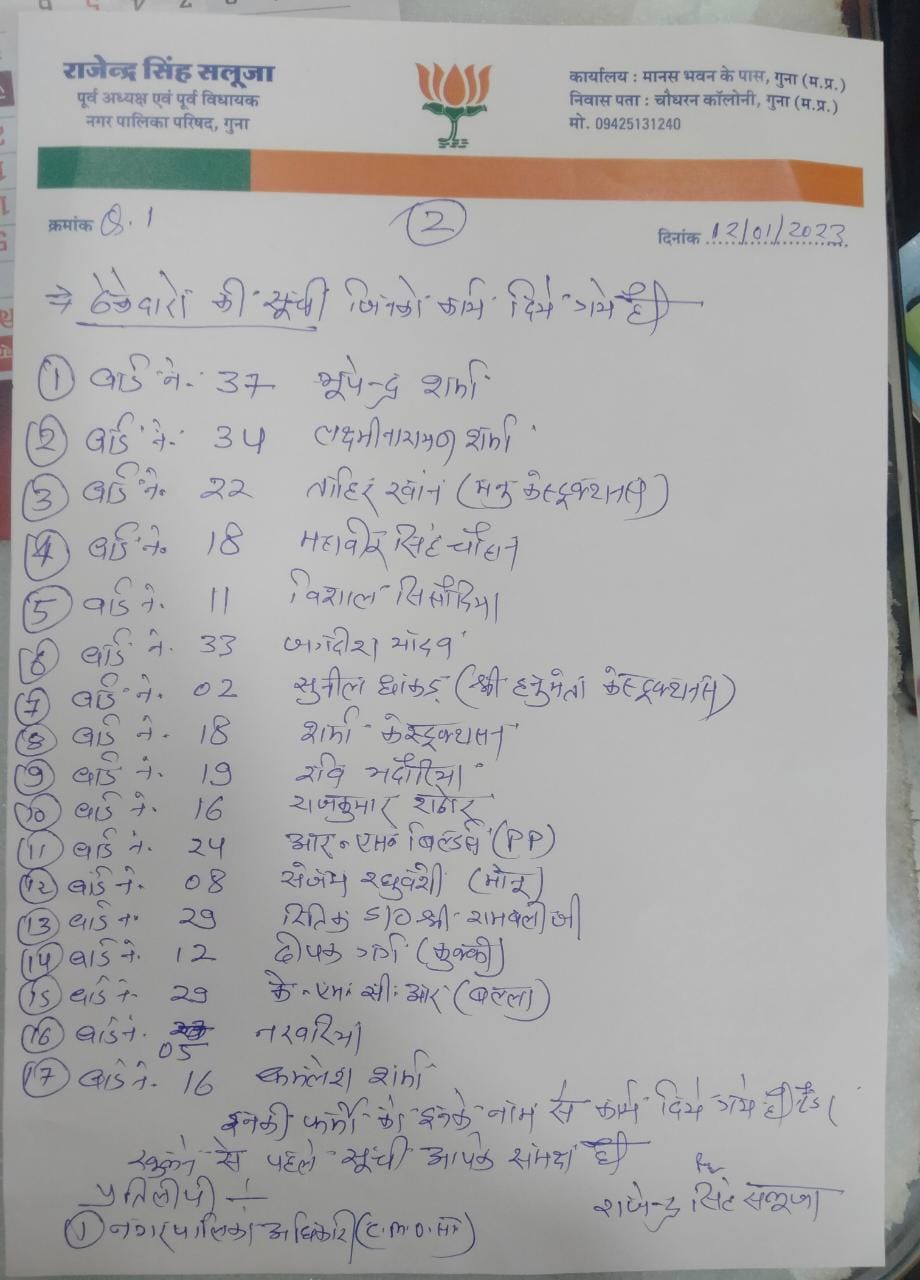 राजेन्द्र सिंह सलूजा
पूर्व अध्यक्ष एवं पूर्व विधायक
नगर पालिका परिषद, गुना
कार्यालय : मानस भवन के पास, गुना (म.प्र.)
निवास पता : चौधरन कॉलोनी, गुना (म.प्र.)
मो. 09425131240
क्रमांक Q.1
2
दिनांक 12/01/2023
⇒ ठेकेदारों की सूची जिनको कार्य दिये गये है
1 वार्ड नं. 37 भूपेन्द्र शर्मा
2 वार्ड नं. 34 लक्ष्मीनारायण शर्मा
3 वार्ड नं. 22 ताहिर खान (मनु कंस्ट्रक्शनस)
4 वार्ड नं. 18 महावीर सिंह चौहान
5 वार्ड नं. 11 विशाल सिसौदिया
6 वार्ड नं. 33 जगदीश यादव
7 वार्ड नं. 02 सुनील धाकड़ (श्री हनुमंता कंस्ट्रक्शनस)
8 वार्ड नं. 18 शर्मा कंस्ट्रक्शसन
9 वार्ड नं. 19 रवि भदौरिया
10 वार्ड नं. 16 राजकुमार राठोर
11 वार्ड नं. 24 आर. एम. बिल्डर्स (PP)
12 वार्ड नं. 08 संजय रघुवंशी (मोनू)
13 वार्ड नं. 29 रितिक S/O श्री रामबली जी
14 वार्ड नं. 12 दीपक गर्ग (कुक्की)
15 वार्ड नं. 29 के. एम. सी. आर (बल्ला)
16 वार्ड नं. 05 नरवरिया
17 वार्ड नं. 16 कमलेश शर्मा
इनकी फर्मो को इनके नाम से कार्य दिये गये है टेंडर
खुलने से पहले सूची आपके समक्ष है
प्रतिलीपी
राजेन्द्र सिंह सलूजा
1 नगरपालिका अधिकारी (C.M.O.)